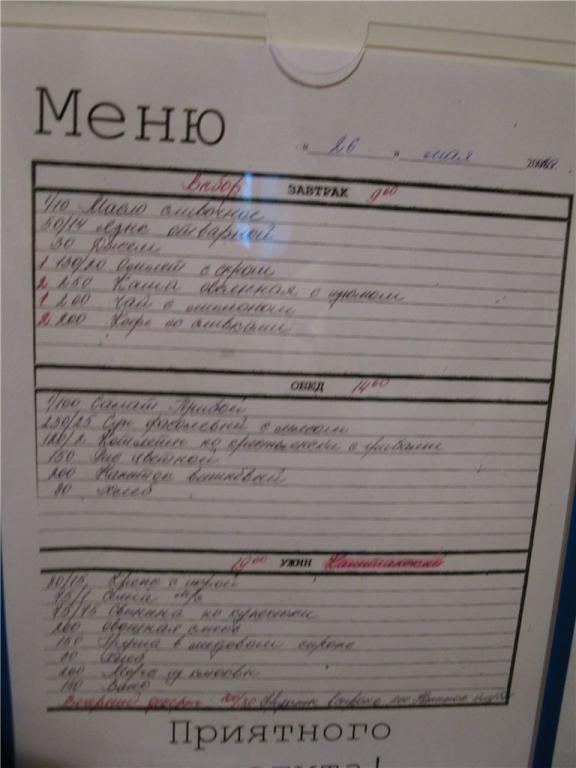 Меню
" 26 " мая 200
Выбор ЗАВТРАК 9 00
1/10 Масло сливочное
50/14 Язык отварной
30 Джем
1 130/20 Омлет с сыром
2 250 Каша овсянная с изюмом
1 200 Чай с лимоном
2 200 Кофе со сливками
ОБЕД 14 00
1/100 Салат Прибой
250/25 Суп фасолевый с мясом
Котлеты по крестьянски с грибами
150 Рис цветной
200 Напиток вишнёвый
80 Хлеб
19 00 УЖИН Капитанский
с икрой
75/1 Сёмга
75/75 Свинина по купечески
200 овощная смесь
150 Груша в медовом сиропе
80 Хлеб
200 Морс из клюквы
150 Вино
Вечерний
Приятного